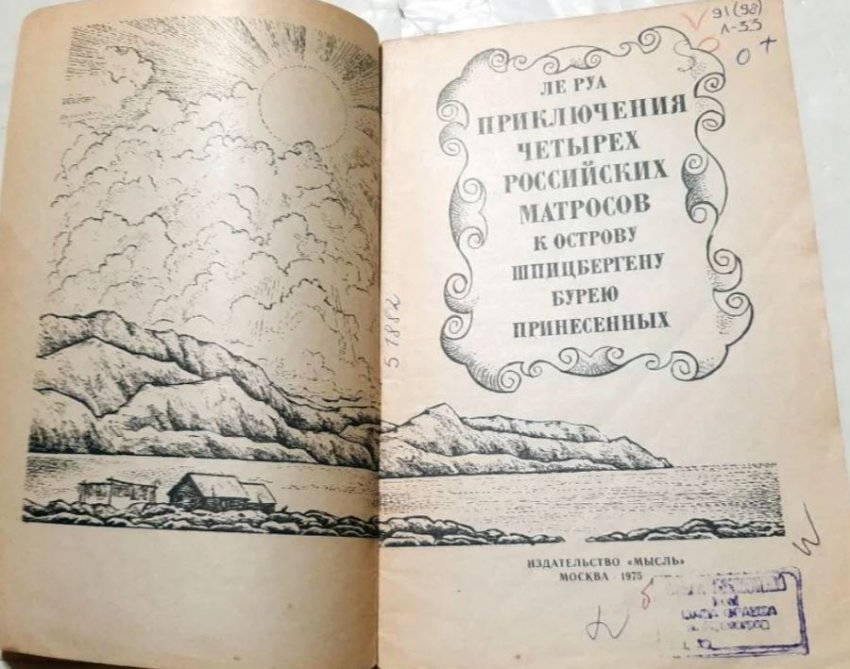 91(98)
Л-33
0 +
ЛЕ РУА
ПРИКЛЮЧЕНИЯ
ЧЕТЫРЕХ
РОССИЙСКИХ
МАТРОСОВ
К ОСТРОВУ
ШПИЦБЕРГЕНУ
БУРЕЮ
ПРИНЕСЕННЫХ
51882
ИЗДАТЕЛЬСТВО «МЫСЛЬ»
МОСКВА · 1975